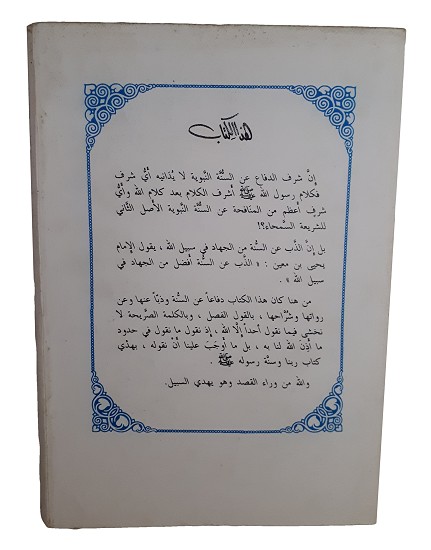 هذا الكتاب
إنَّ شرف الدفاع عن السنَّة النبوية لا يُدانيه أيُّ شرف
فكلام رسول الله ﷺ أشرف الكلام بعد كلام الله وأيُّ
شرف أعظم من المنافحة عن السنَّة النبوية الأصل الثاني
للشريعة السمحاء؟!
بل إنَّ الذَّب عن السنَّة من الجهاد في سبيل الله ، يقول الإمام
يحيى بن معين : « الذَّب عن السنَّة أفضل من الجهاد في
سبيل الله » .
من هنا كان هذا الكتاب دفاعاً عن السنَّة وذبّاً عنها وعن
رواتها وشُرَّاحها ، بالقول الفصل ، وبالكلمة الصريحة لا
نخشى فيما نقول أحداً إلَّا الله ، إذ نقول ما نقول في حدود
ما أذِنَ الله لنا به ، بل ما أوجَبَ علينا أنْ نقوله ، بهدْي
كتاب ربنا وسنَّة رسوله ﷺ .
والله من وراء القصد وهو يهدي السبيل.